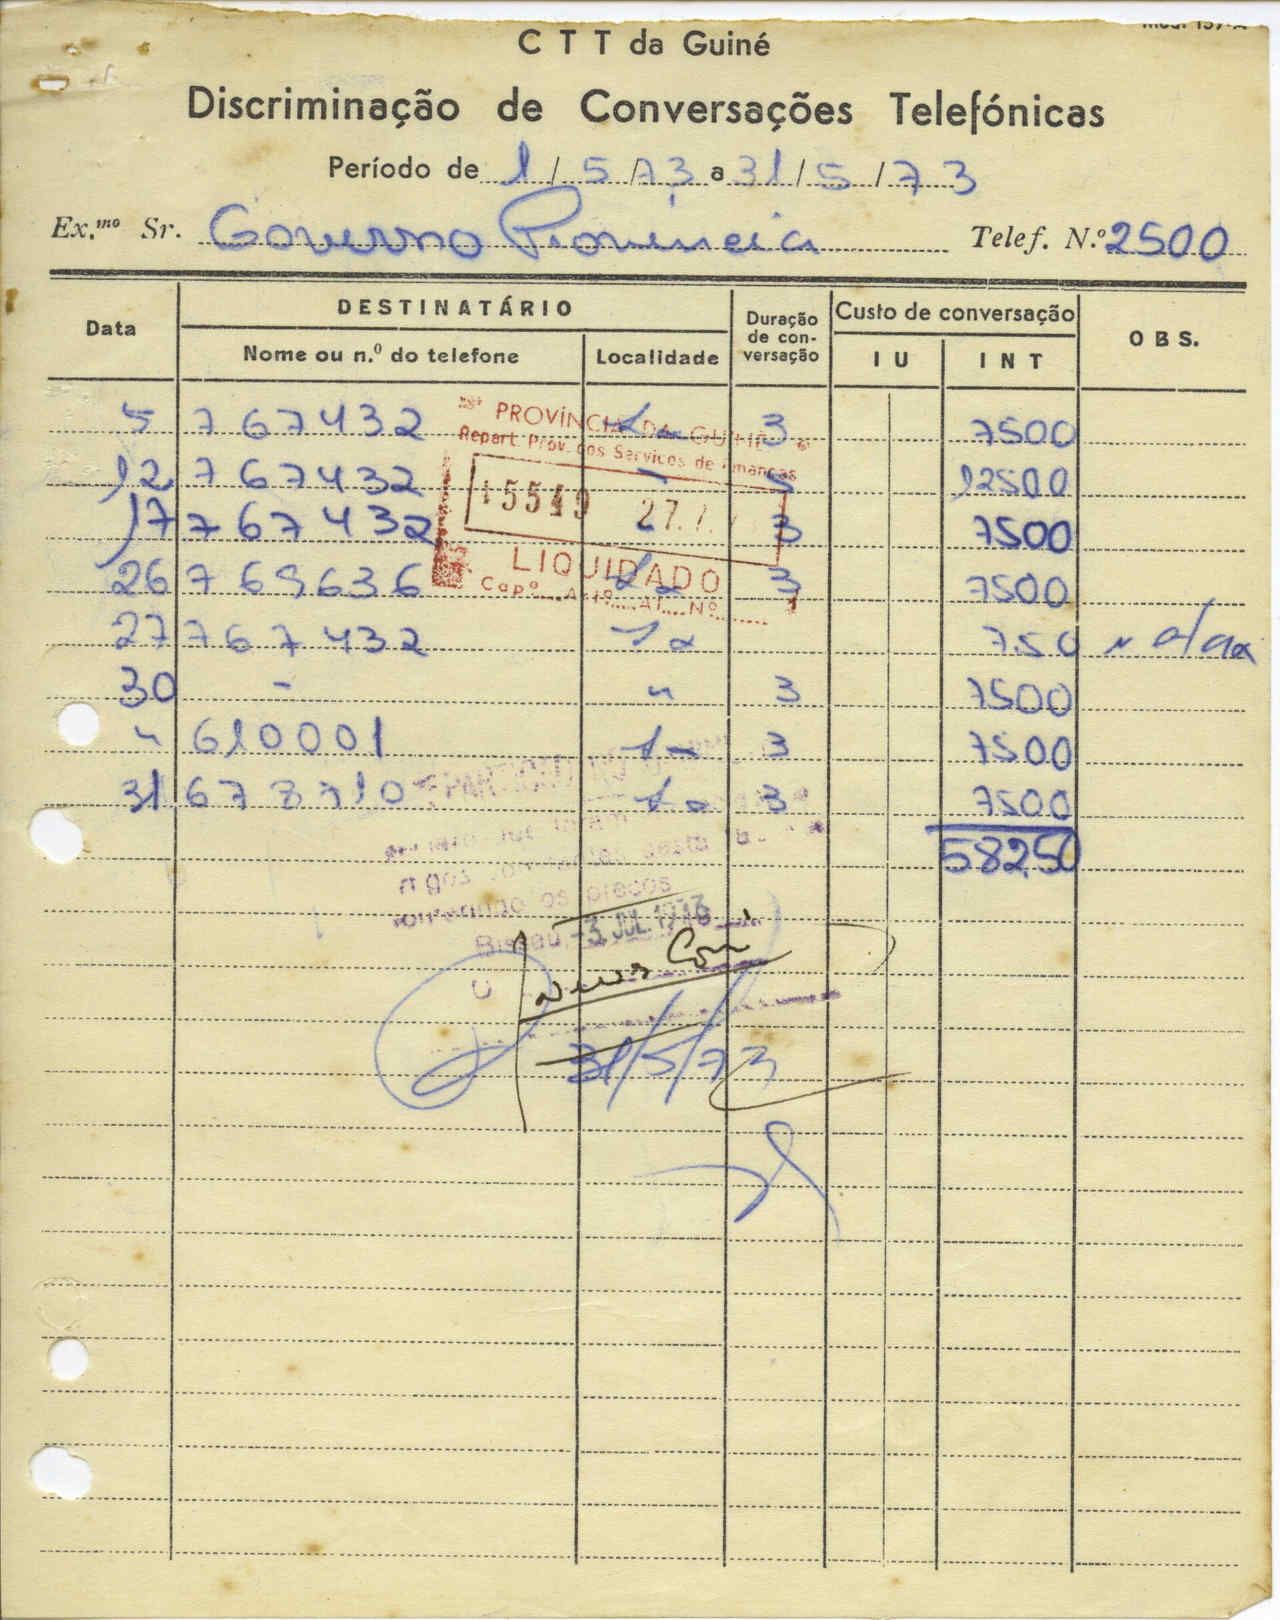 C T T da Guiné
Discriminação de Conversações Telefónicas
Período de 1/5/73 a 31/5/73
Ex.mo Sr. Governo Provincia Telef. N.º 2500
Data DESTINATÁRIO Duração de conversação Custo de conversação OBS.
Nome ou n.º do telefone Localidade IU INT
5 767432 Lx 3 7500
PROVÍNCIA DA GUINÉ
Repart. Prov. dos Serviços de Finanças
12 767432 - 5 12500
15549 27.7.
17 767432 3 7500
LIQUIDADO
26 769636 Lx 3 7500
Cap.º Art.º Al. N.º
27 767432 Lx 750
30 - " 3 7500
" 610001 Lx 3 7500
31 678710 Lx 3 7500
58250
os preços
Bissau, -3. JUL. 1973
31/5/73